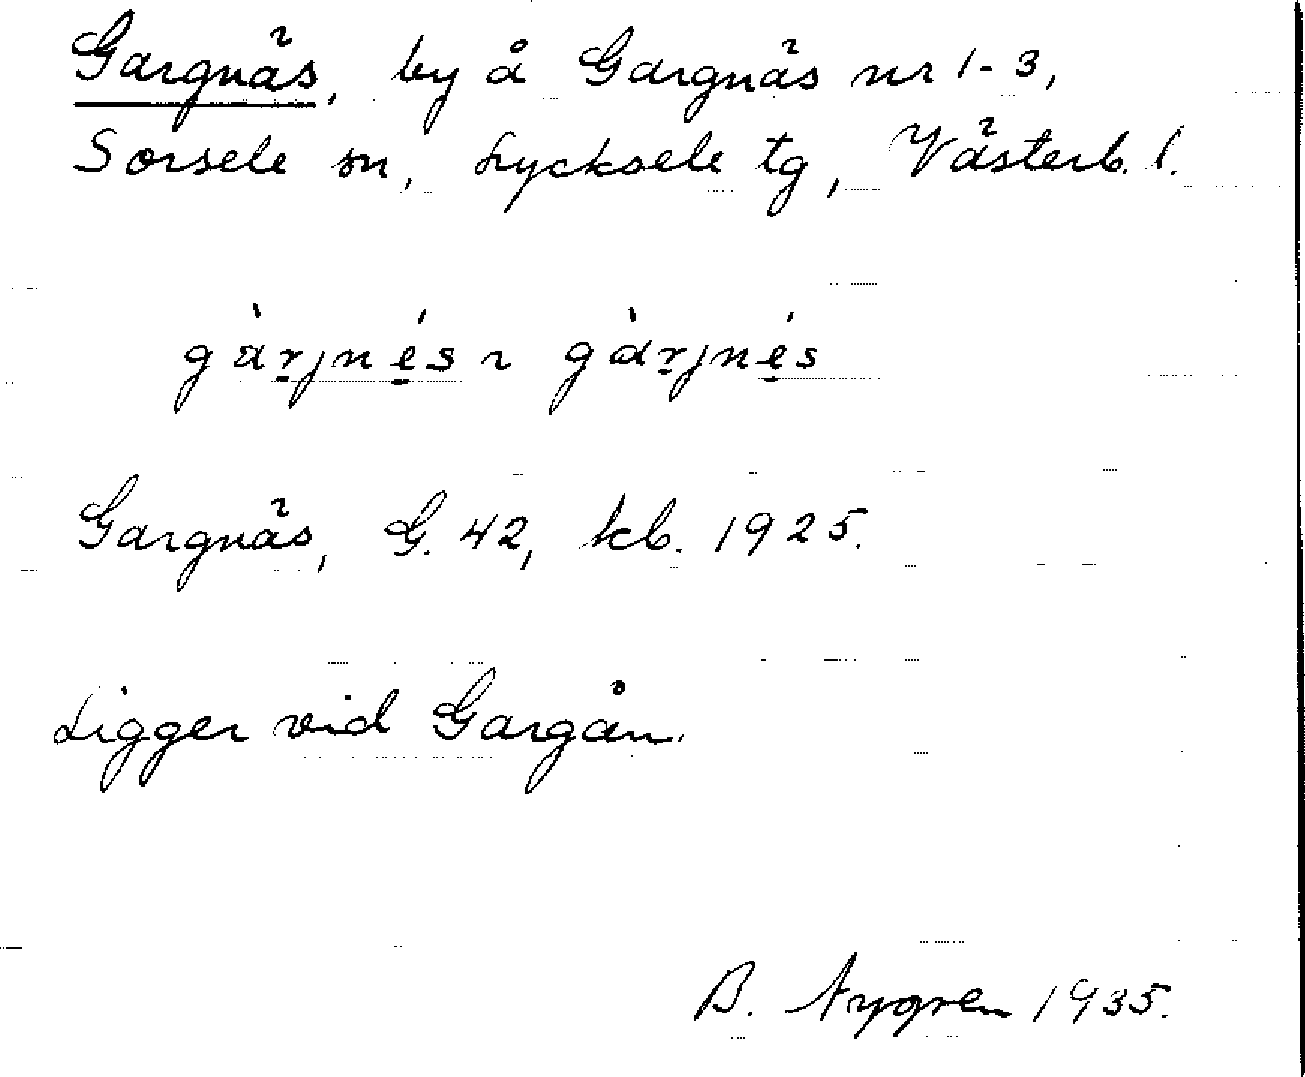 Gargnäs, by å Gargnäs nr 1-3,
Sorsele sn, Lycksele tg, Västerb. l.
gàrjnés ~ gàrjnés
Gargnäs, G. 42, kb. 1925.
Ligger vid Gargån.
B. Nygren 1935.